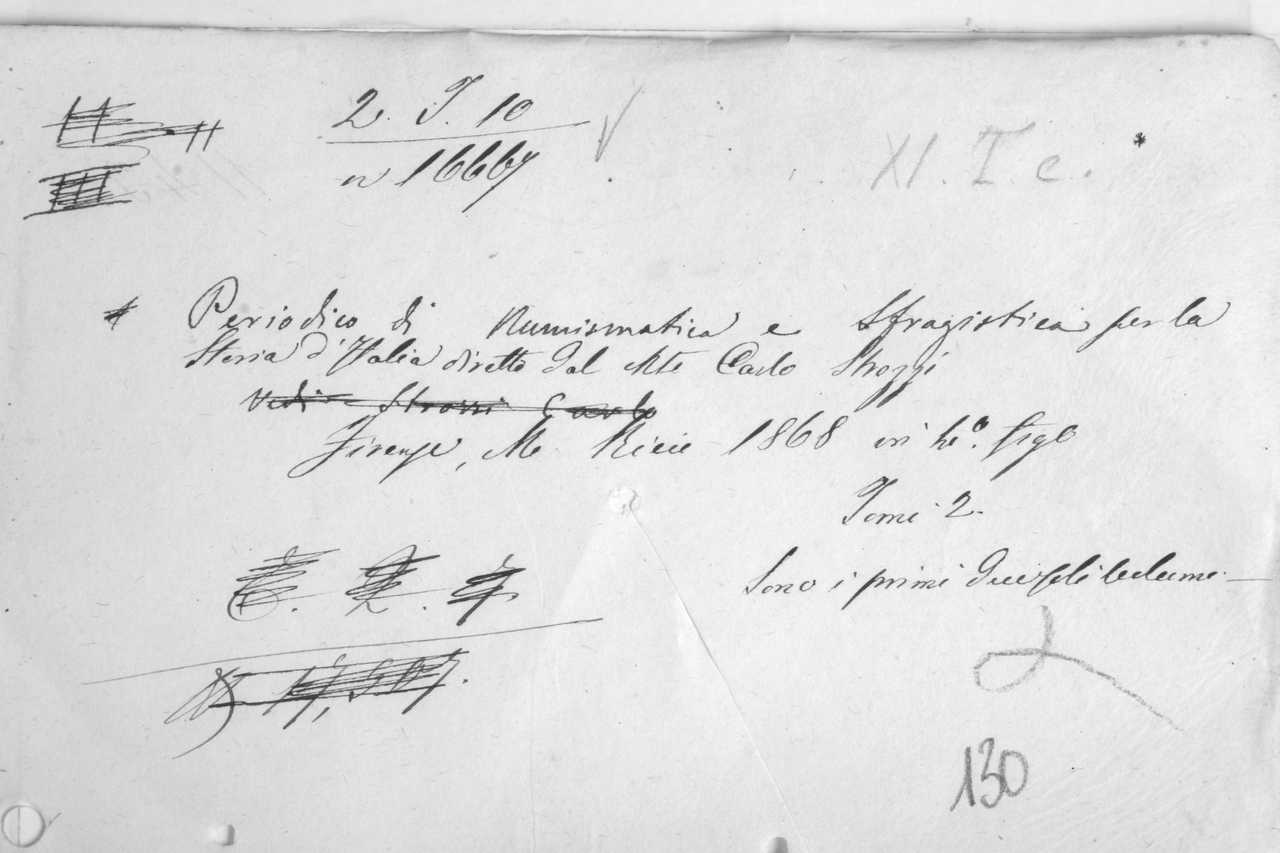 2. T. 10
n 16667
XI. T. c.
Periodico di Numismatica e Sfragistica per la
Storia d'Italia diretto dal Mse Carlo Strozzi
Vedi Strozzi Carlo
Firenze, M. Ricci 1868 in 4.o fig.o
Tomi 2.
Sono i primi due
130